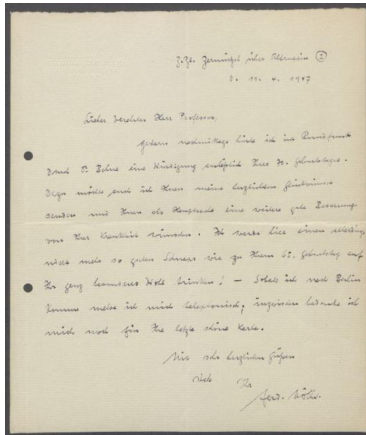 z.Zt. Zermützel über Altruppin
d. 11. 4. 1947
Lieber verehrter Herr Professor,
gestern nachmittag hörte ich im Rundfunk
durch Dr. Behne eine Würdigung anläßlich Ihres Geburtstages.
Dazu möchte auch ich Ihnen meine herzlichsten Glückwünsche
senden und Ihnen als Hauptsache eine weitere gute Besserung
von Ihrer Krankheit wünschen. Ich werde hier einen
nicht mehr so guten Schnaps wie zu Ihrem 60. Geburtstag auf
Ihr ganz besonderes Wohl trinken! — Sobald ich nach Berlin
komme melde ich mich telephonisch, inzwischen bedanke ich
mich noch für Ihre letzte schöne Karte.
Mit sehr herzlichen Grüßen
Ihr